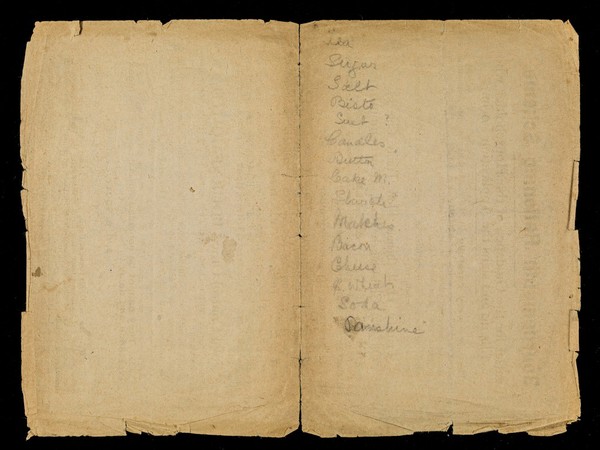 Tea
Sugar
Salt
Bisto
Suet ?
Candles
Butter
Cake M.
Matches
Bacon
Cheese
Soda
Sunshine